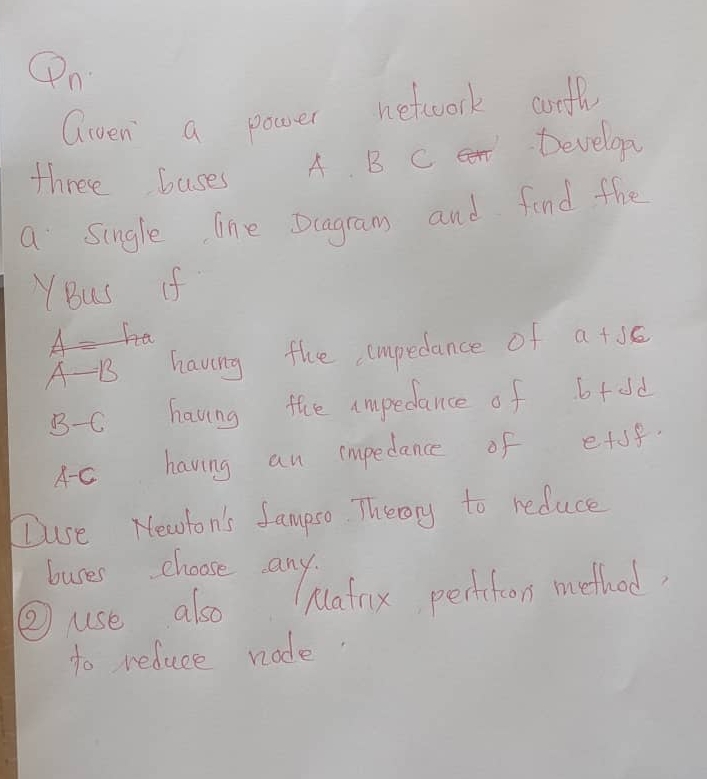 Qn.
Given a power network with
three buses A B C Develop
a single line Diagram and find the
Y Bus if
A = ha
A-B having the impedance of a+jc
B-C having the impedance of b+jd
A-C having an impedance of e+jf.
① use Newton's Theory to reduce
buses choose any.
② use also Matrix pertition method,
to reduce node.